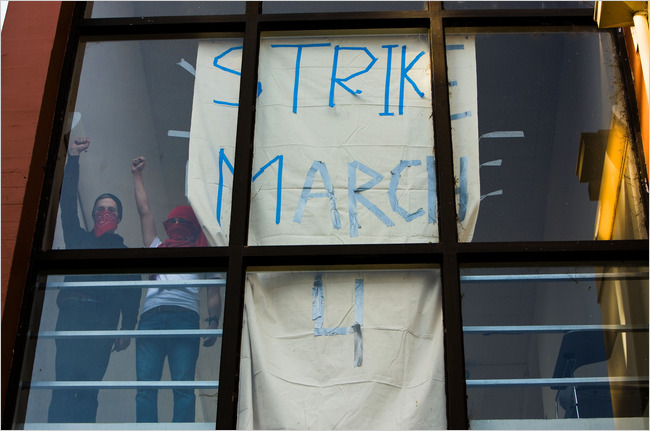 STRIKE
MARCH
4